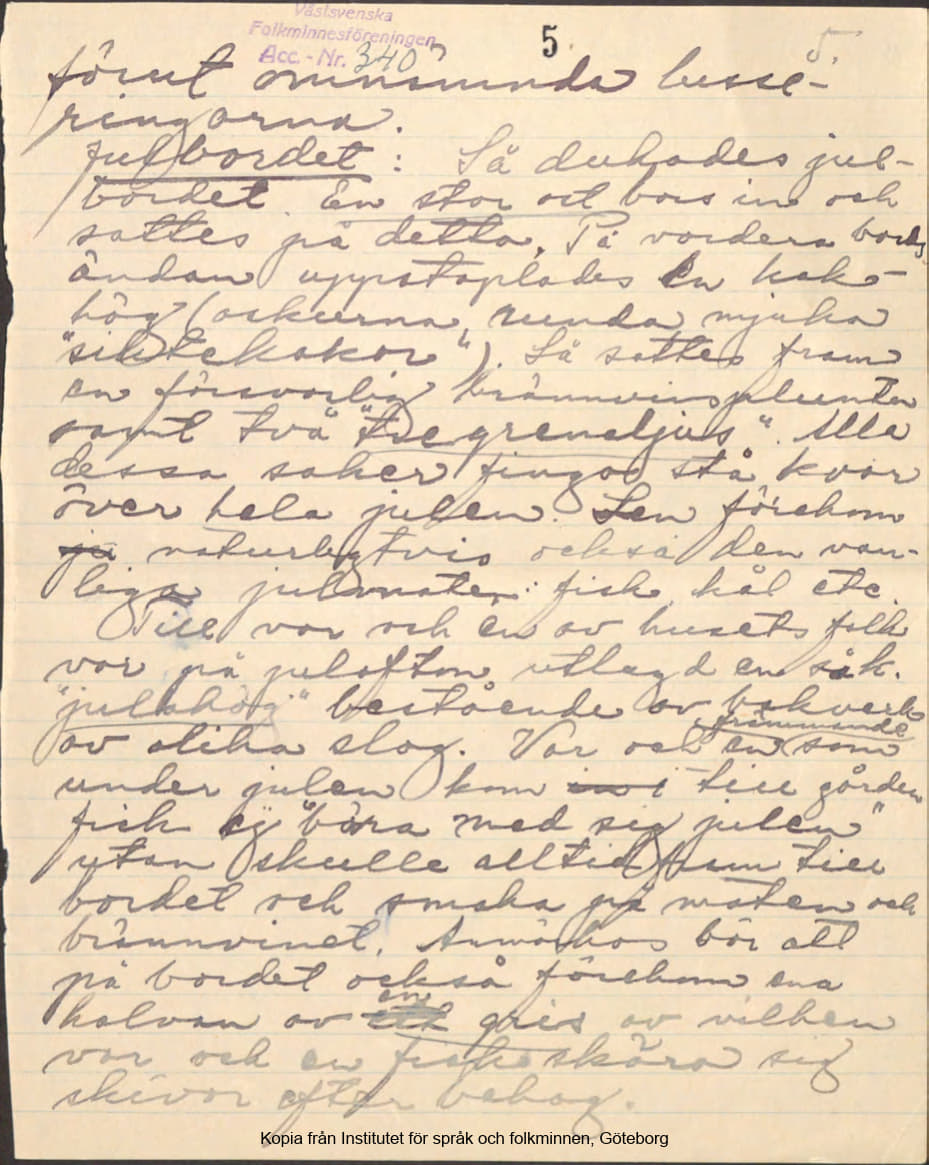 Västsvenska
Folkminnesföreningen
Acc. - Nr. 340
5
5.
förut omnämnda lusse-
ringarna.
Julbordet: Så dukades jul-
bordet. En stor ost bars in och
sattes på detta. På vardera bords
ändan uppstaplades en kak-
hög (oskurna, runda, mjuka
"siktekakor"). Så sattes fram
en försvarlig brännvinsplunta
samt två "tregrenaljus". Alla
dessa saker fingo stå kvar
över hela julen. Sen förekom
ju naturligtvis också den van-
liga julmaten: fisk, kål etc.
Till var och en av husets folk
var på julafton utlagd en s.k.
"julahög" bestående av bakverk
av olika slag. Var och en främmande som
under julen kom in i till gården
fick ej "bära med sig julen"
utan skulle alltid fram till
bordet och smaka på maten och
brännvinet. Anmärkas bör att
på bordet också förekom ena
halvan av en gris av vilken
var och en fick skära sig
skivor efter behag.
Kopia från Institutet för språk och folkminnen, Göteborg